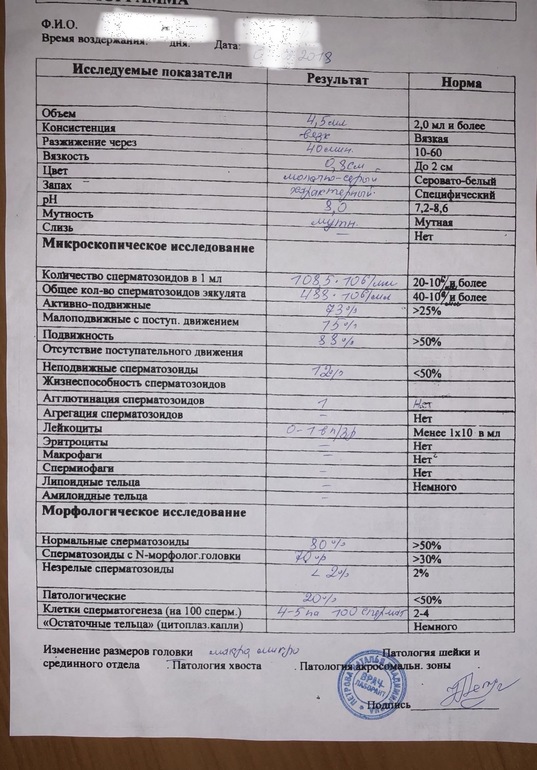 Ф.И.О.
Время воздержания: дня. Дата: 2018
Исследуемые показатели Результат Норма
Объем 4,5мл 2,0 мл и более
Консистенция вязк Вязкая
Разжижение через 40мин. 10-60
Вязкость 0,8см До 2 см
Цвет молочно-серый Серовато-белый
Запах характерный Специфический
pH 8,0 7,2-8,6
Мутность мутн. Мутная
Слизь – Нет
Микроскопическое исследование
Количество сперматозоидов в 1 мл 108,5·10б/мл 20-10 и более
Общее кол-во сперматозоидов эякулята 488·10б/мл 40-10 и более
Активно-подвижные 73% >25%
Малоподвижные с поступ. движением 15%
Подвижность 88% >50%
Отсутствие поступательного движения
Неподвижные сперматозоиды 12% <50%
Жизнеспособность сперматозоидов
Агглютинация сперматозоидов 1 Нет
Агрегация сперматозоидов – Нет
Лейкоциты 0-1 в п/зр Менее 1x10 в мл
Эритроциты – Нет
Макрофаги – Нет
Спермиофаги – Нет
Липоидные тельца – Немного
Амилоидные тельца –
Морфологическое исследование
Нормальные сперматозоиды 80% >50%
Сперматозоиды с N-морфолог.головки >30%
Незрелые сперматозоиды < 2% 2%
Патологические 20% <50%
Клетки сперматогенеза (на 100 сперм.) 4-5 на 100 спермат 2-4
«Остаточные тельца» (цитоплаз.капли) Немного
Изменение размеров головки макро микро Патология шейки и
срединного отдела . Патология хвоста . Патология акросомальн. зоны
ВРАЧ
ЛАБОРАНТ
Подпись